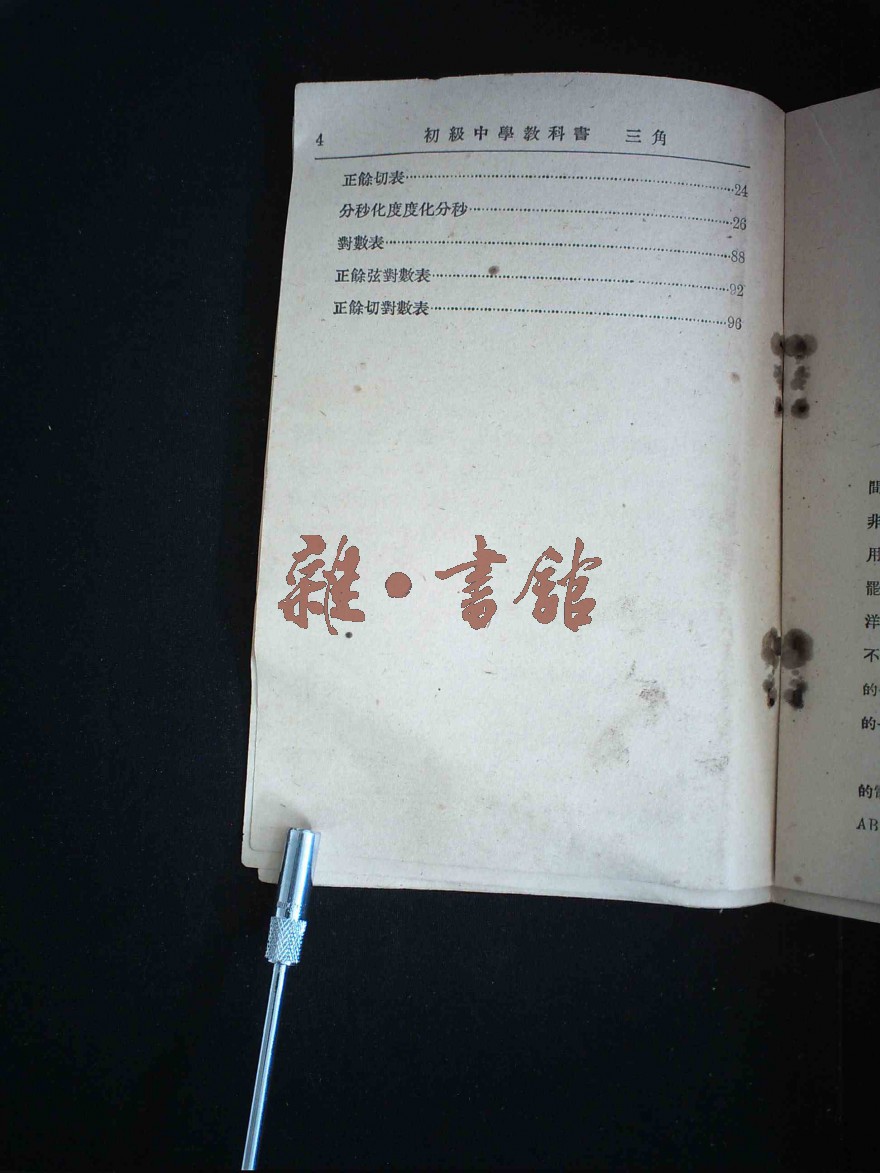 4 初級中學教科書 三角
正餘切表……24
分秒化度度化分秒……26
對數表……88
正餘弦對數表……92
正餘切對數表……96
雜·書館
間
非
用
罷
洋
不
的
的
的
AB